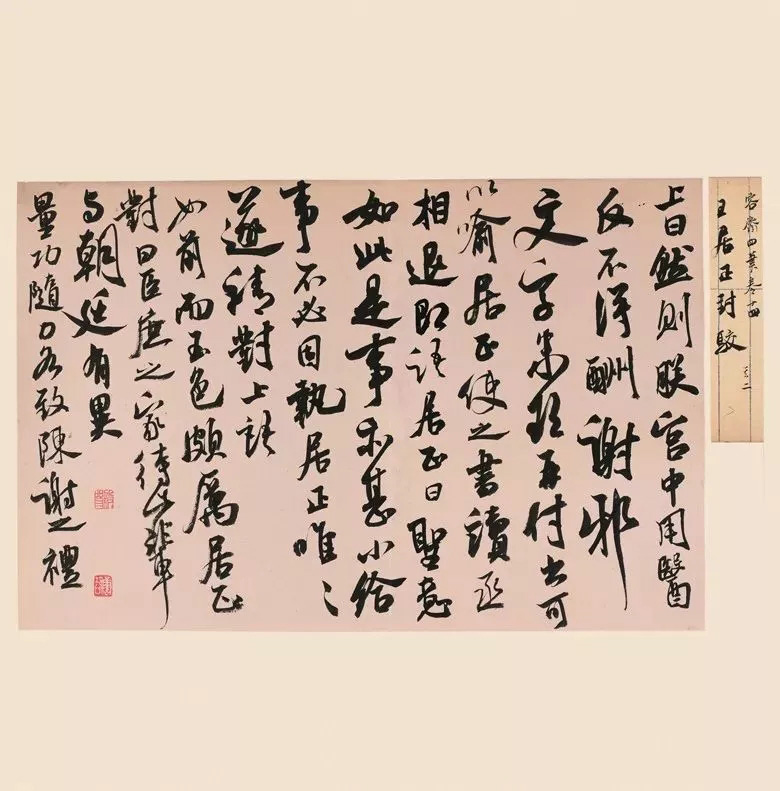 容齋四筆卷十四
王居正封駁 之二
上曰然則朕宮中用醫
反不得酬謝邪
文字未欲再付出可
以喻居正使之書讀丞
相退即語居正曰聖意
如此是事亦甚小給
事不必固執居正唯〻
遂請對上語
如前而玉色頗厲居正
對曰臣庶之家待此輩
与朝廷有異
量功隨力各致陳謝之禮